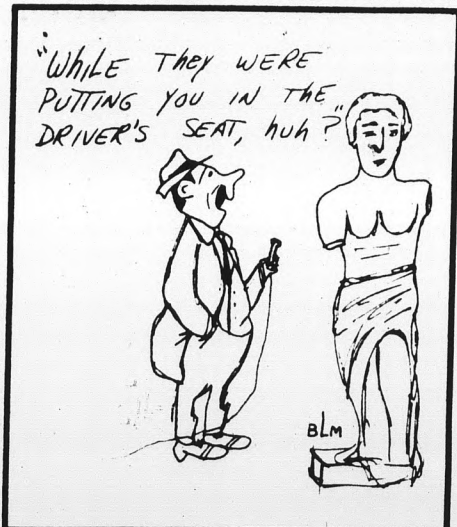 "WHILE THEY WERE
PUTTING YOU IN THE
DRIVER'S SEAT, huh?"
BLM